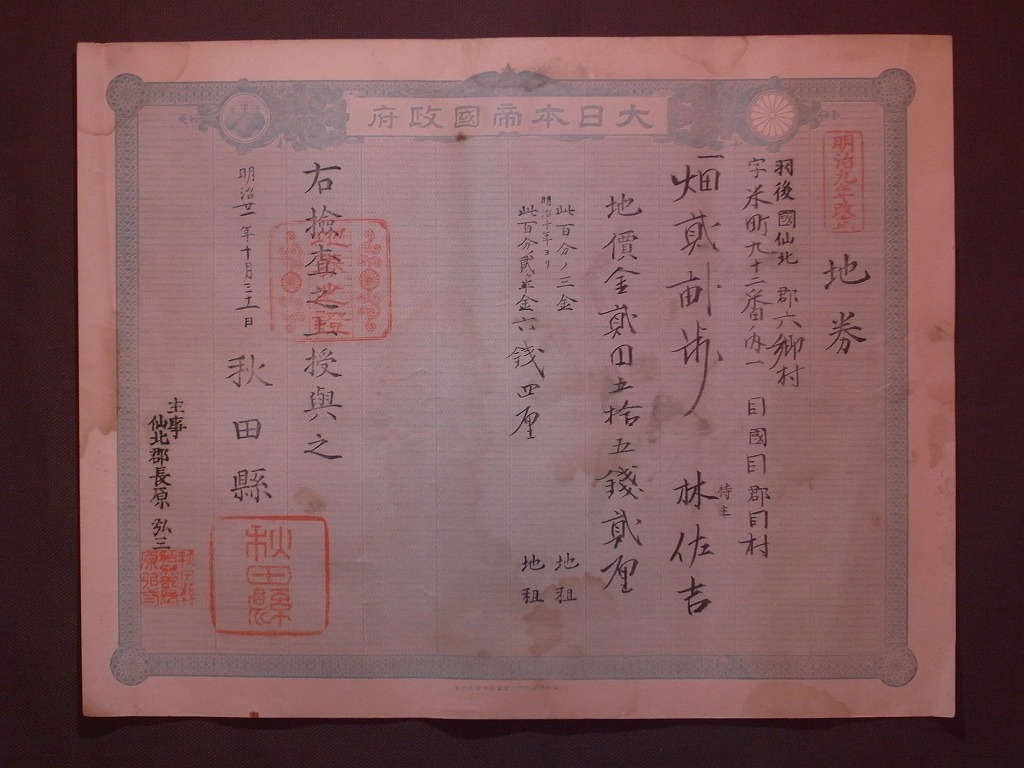 大日本帝國政府
明治九年改正
地券
羽後國仙北郡六郷村
字米町九十二番ノ内一
同國同郡同村
一畑貳畝歩
持主
林佐吉
地價金貳円五拾五錢貳厘
此百分ノ三金
地租
明治十年ヨリ
此百分ノ貳半金六錢四厘
地租
右検査之上授與之
明治廿一年十月三十一日
秋田縣
秋田縣
主事
仙北郡長原弘三